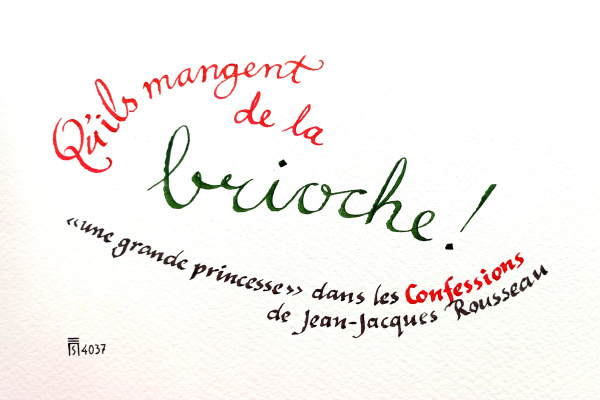 Qu'ils mangent
de la
brioche !
«une grande princesse» dans les Confessions
de Jean-Jacques Rousseau
4037